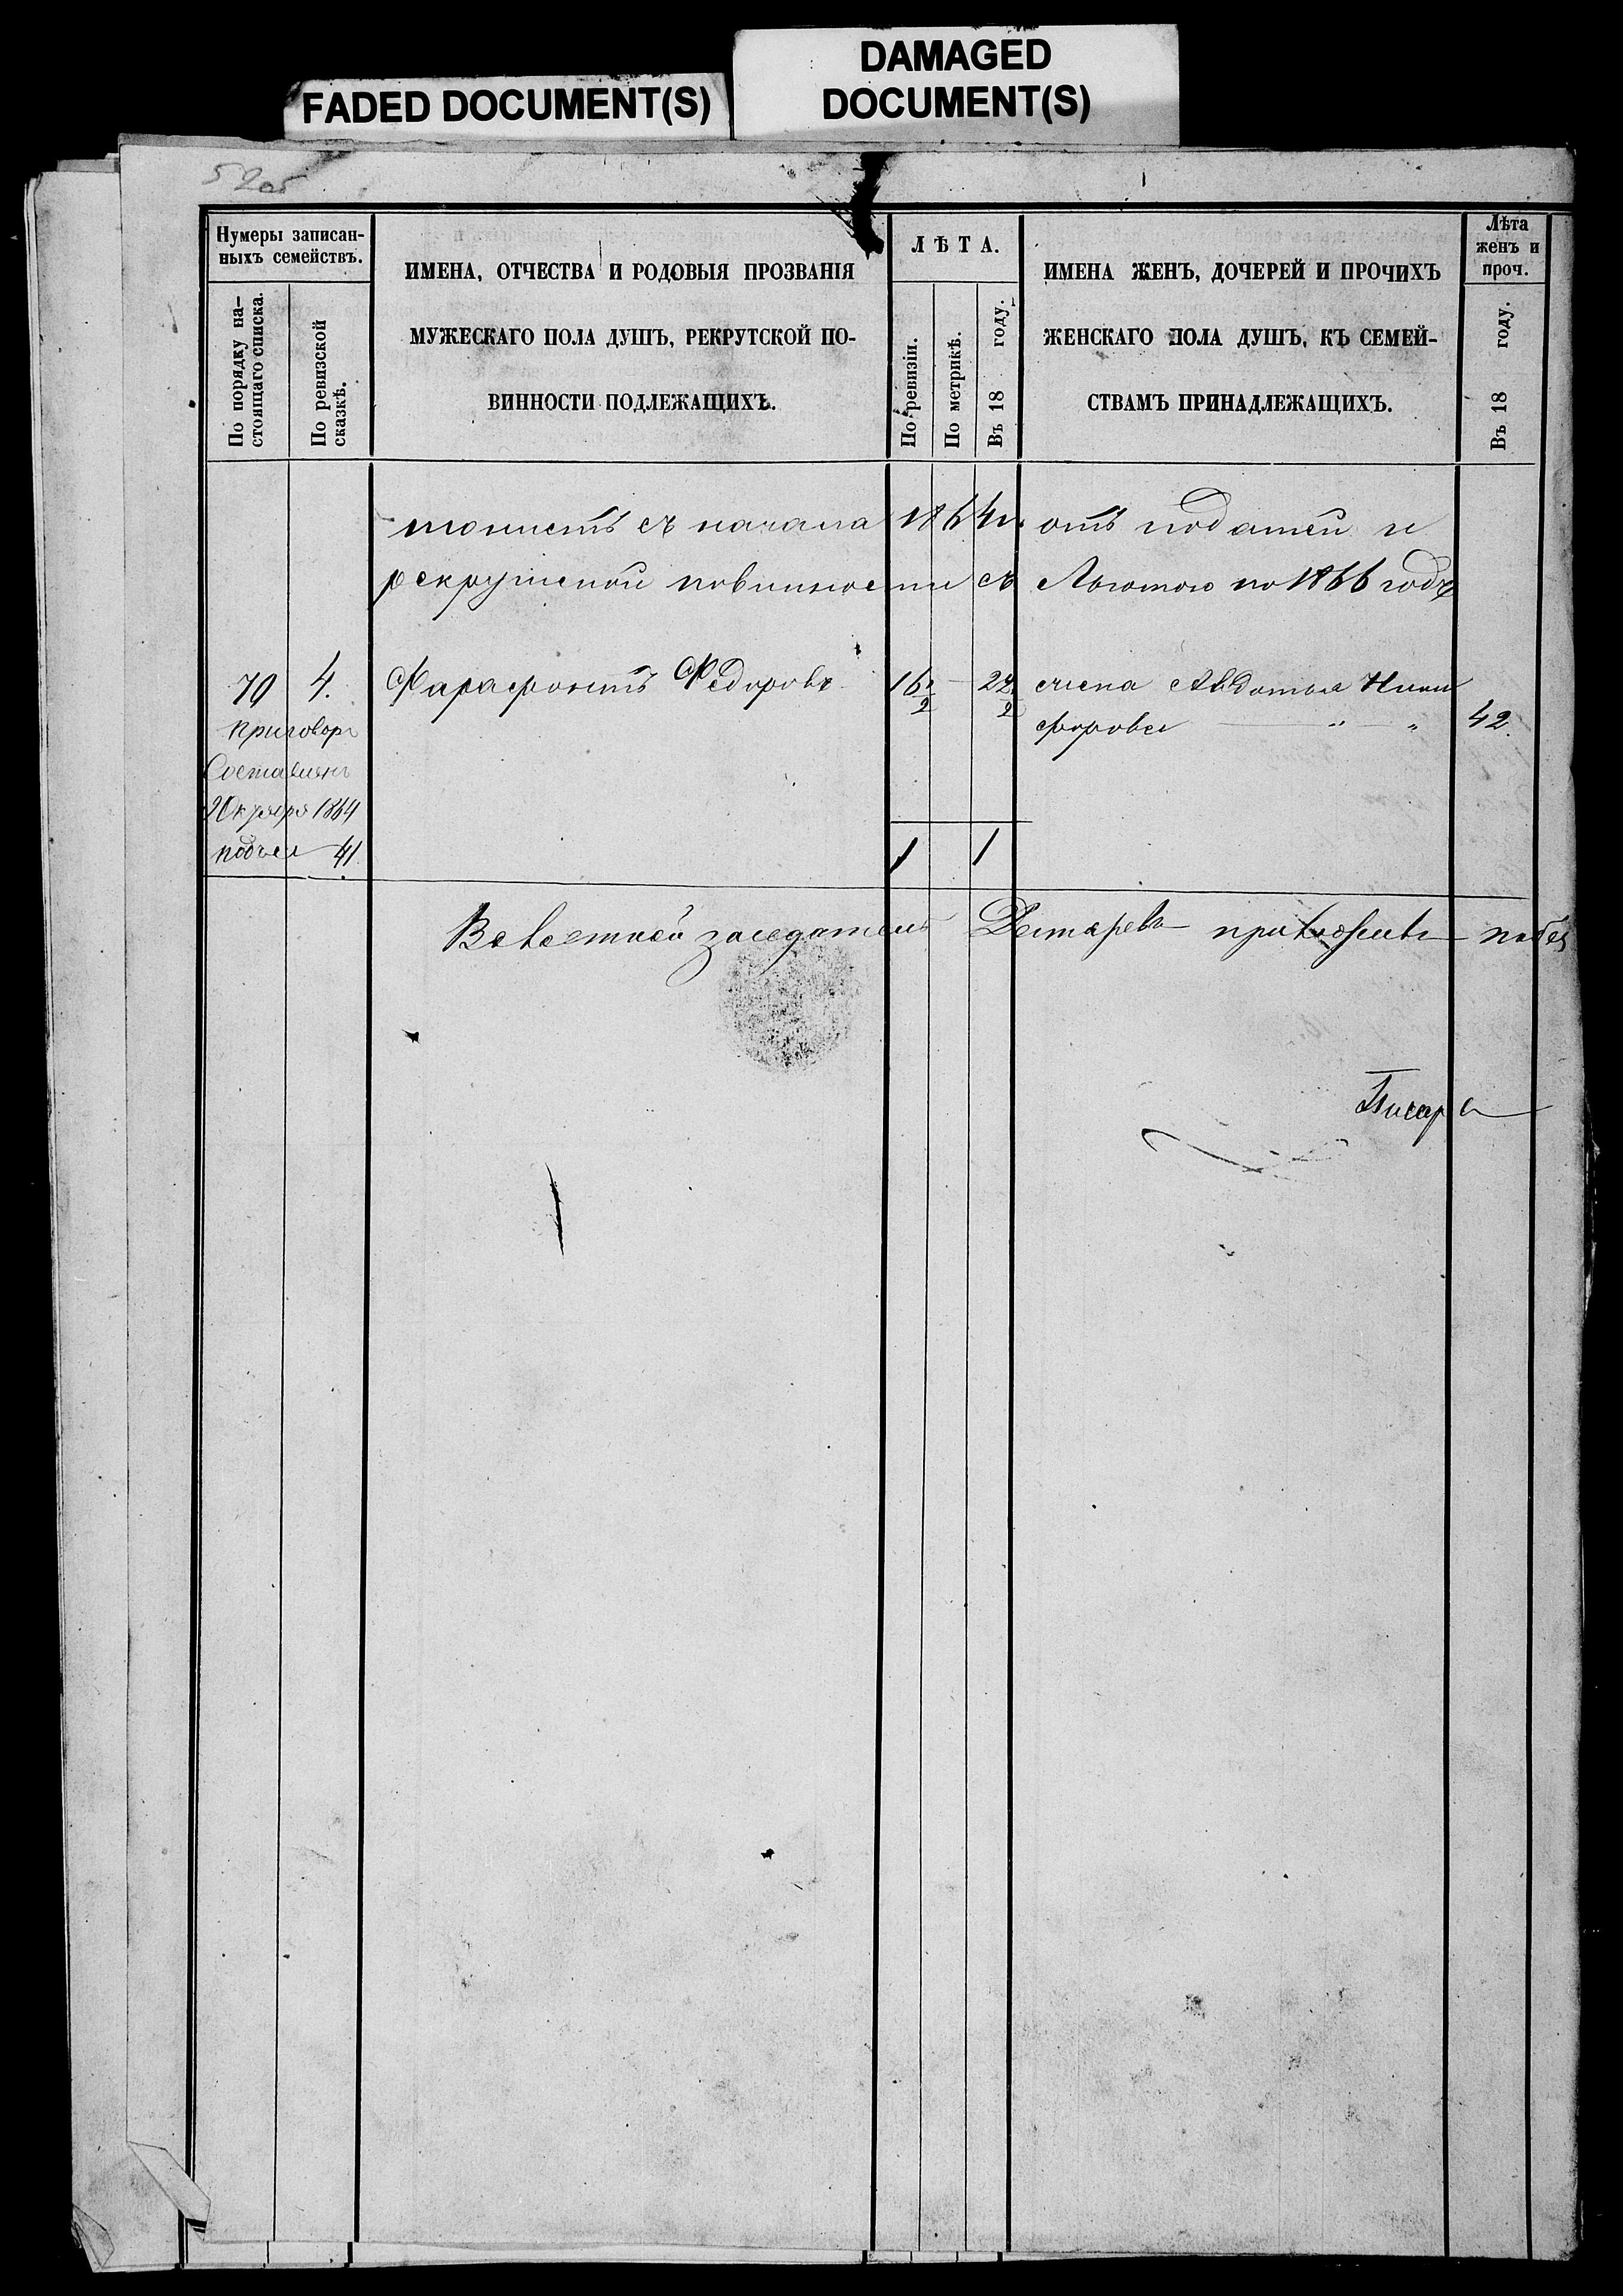 FADED DOCUMENT(S)
DAMAGED
DOCUMENT(S)
52 об
Нумеры записан-
ныхъ семействъ.
По порядку на-
стоящаго списка.
По ревизской
сказкѣ.
ИМЕНА, ОТЧЕСТВА И РОДОВЫЯ ПРОЗВАНІЯ
МУЖЕСКАГО ПОЛА ДУШЪ, РЕКРУТСКОЙ ПО-
ВИННОСТИ ПОДЛЕЖАЩИХЪ.
ЛѢТА.
По ревизіи.
По метрикѣ.
Въ 18 году.
ИМЕНА ЖЕНЪ, ДОЧЕРЕЙ И ПРОЧИХЪ
ЖЕНСКАГО ПОЛА ДУШЪ, КЪ СЕМЕЙ-
СТВАМЪ ПРИНАДЛЕЖАЩИХЪ.
Лѣта
женъ и
проч.
Въ 18 году.
съ начала 1864 г. отъ податей и
рекрутской повинности съ Льготою по 1866 годъ
70 4. Фарафонтъ Федоровъ 16 1/2 22 1/2 Авдотья Ники
форова 42.
приговоръ
Составленъ
1864
41
1 1
Волостной заседатель приложилъ
Писарь